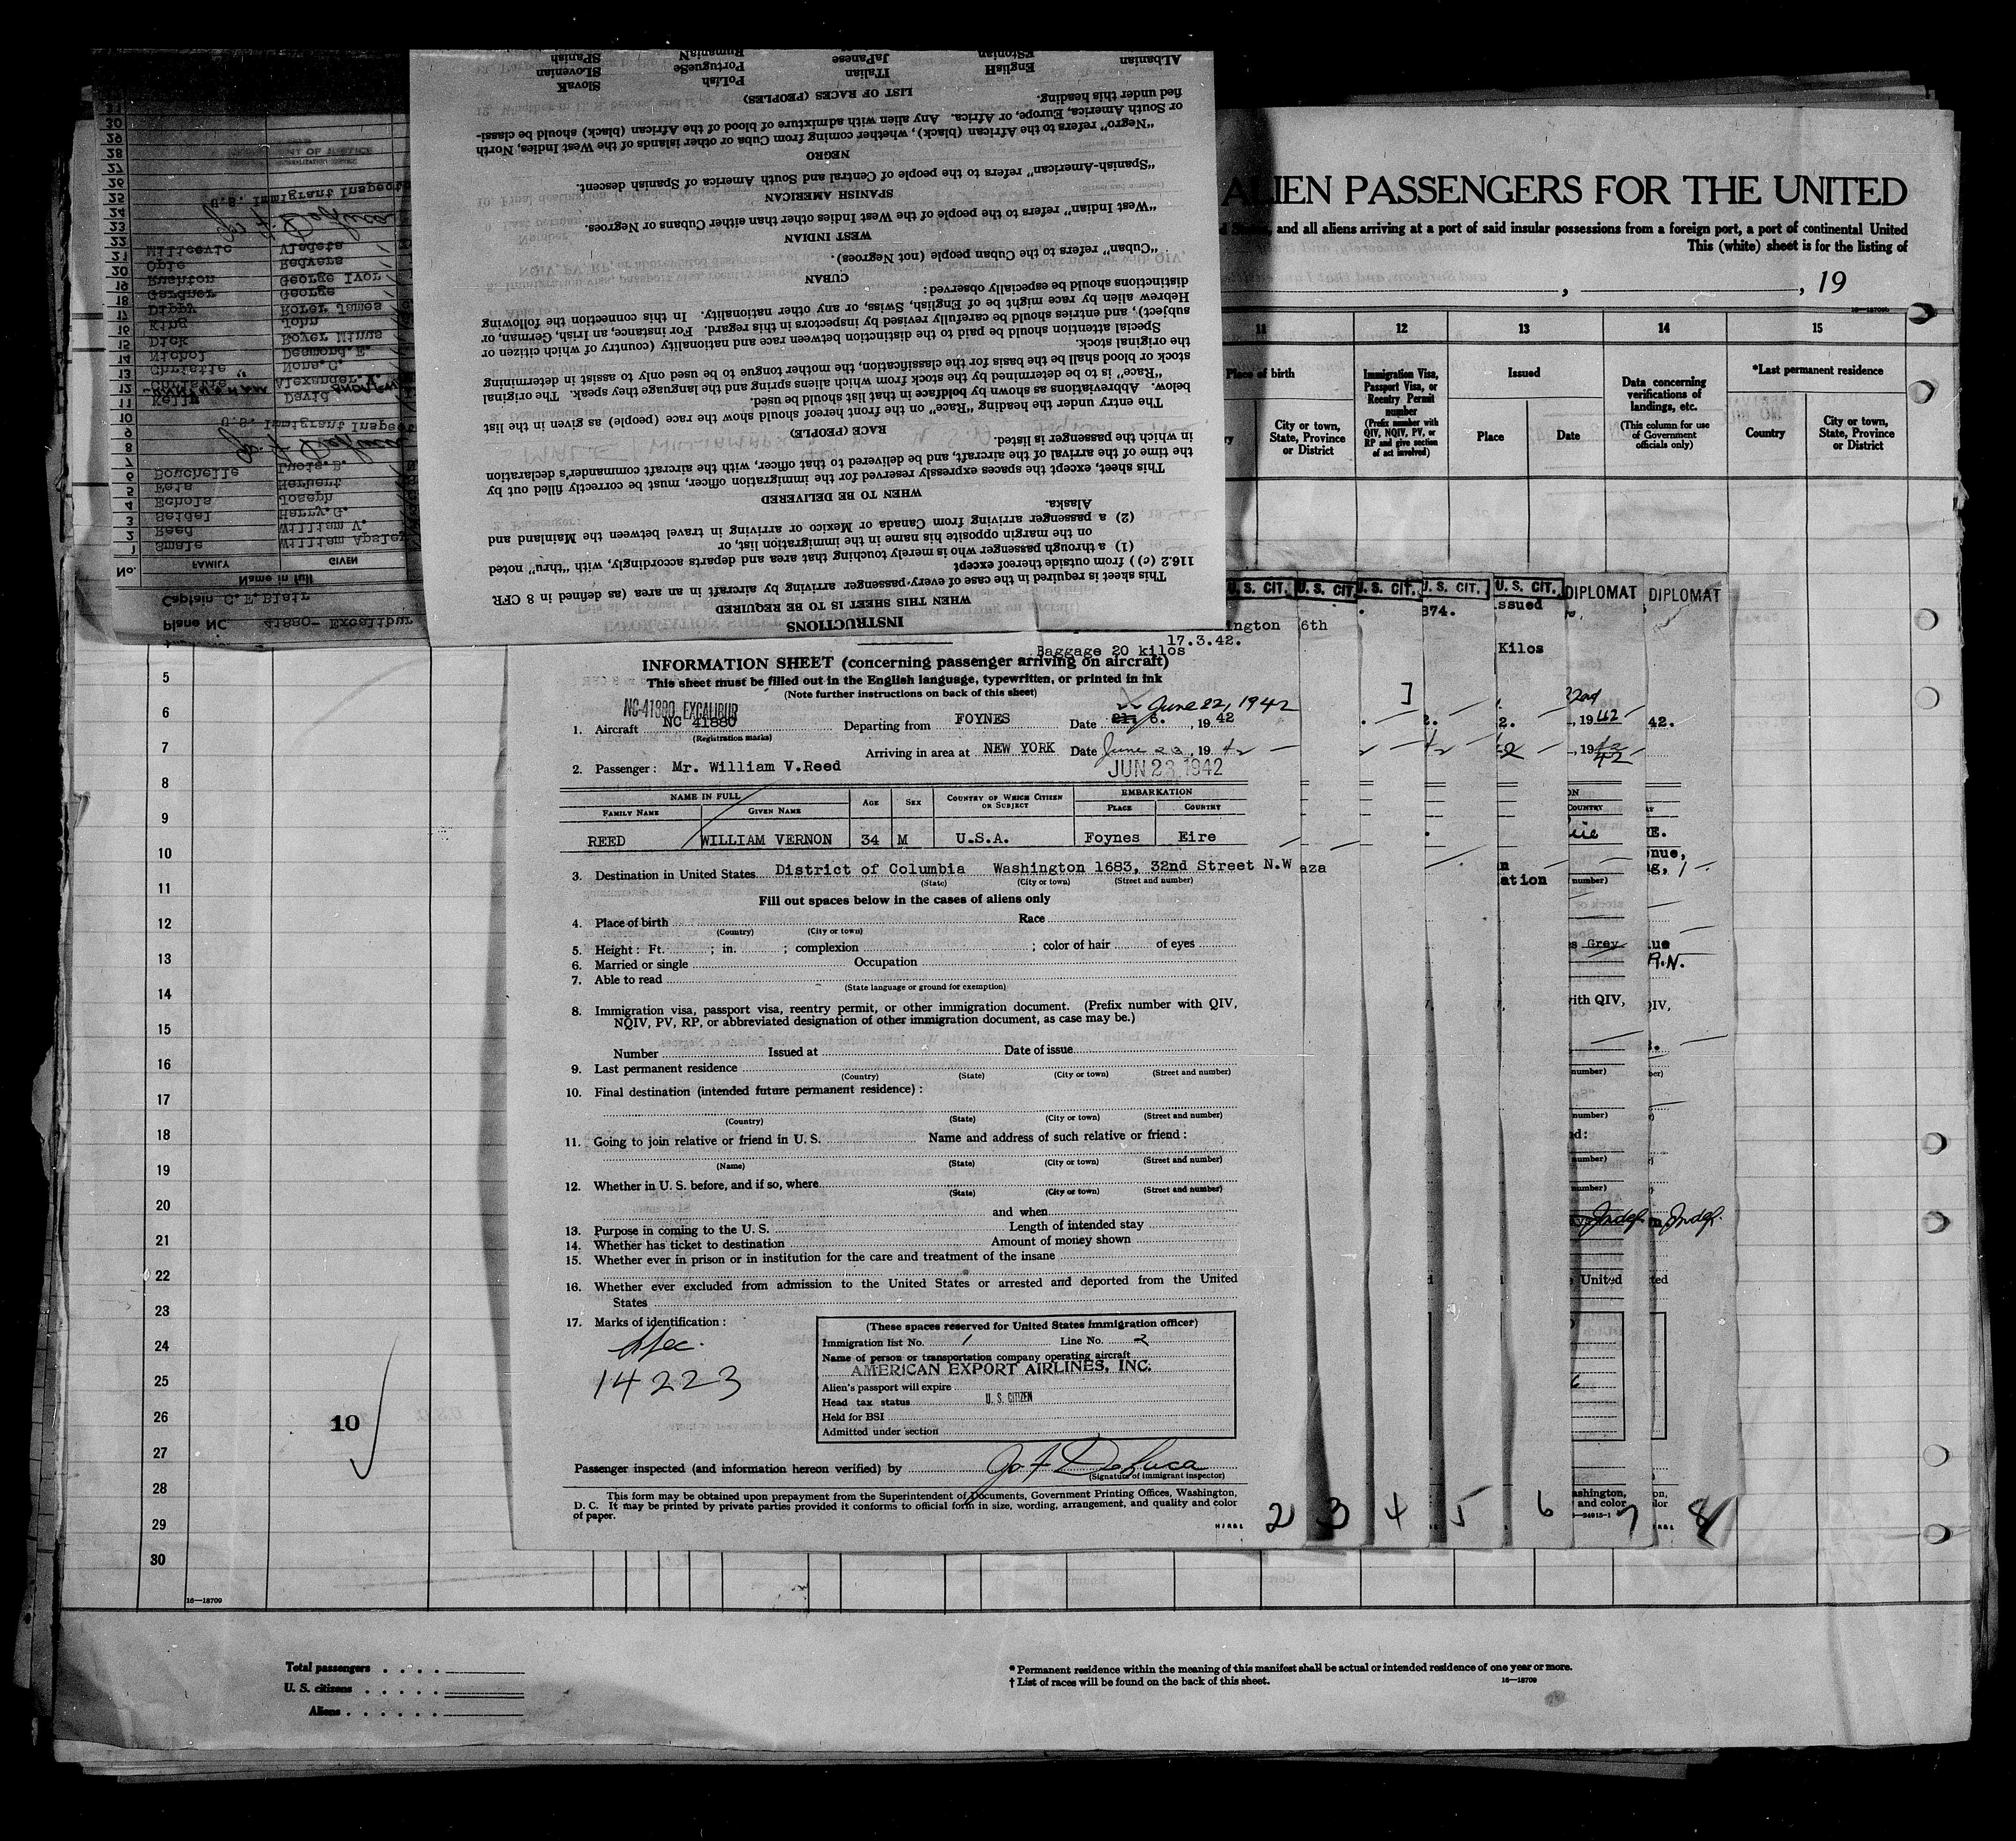 ALbanian EngliSH ITalian PoLish SlovaK
EStonian JaPanese PortugueSe SLovenian
RumaniaN SPanish
LIST OF RACES (PEOPLES)
fied under this heading.
or South America, Europe, or Africa. Any alien with admixture of blood of the African (black) should be classi-
"Negro" refers to the African (black), whether coming from Cuba or other islands of the West Indies, North
NEGRO
"Spanish-American" refers to the people of Central and South America of Spanish descent.
SPANISH AMERICAN
"West Indian" refers to the people of the West Indies other than either Cubans or Negroes.
WEST INDIAN
"Cuban" refers to the Cuban people (not Negroes).
CUBAN
distinctions should be especially observed:
Hebrew alien by race might be of English, Swiss, or any other nationality. In this connection the following
subject), and entries should be carefully revised by inspectors in this regard. For instance, an Irish, German, or
Special attention should be paid to the distinction between race and nationality (country of which citizen or
the original stock.
stock or blood shall be the basis for the classification, the mother tongue to be used only to assist in determining
"Race" is to be determined by the stock from which aliens spring and the language they speak. The original
below. Abbreviations as shown by boldface in that list should be used.
The entry under the heading "Race" on the front hereof should show the race (people) as given in the list
RACE (PEOPLE)
in which the passenger is listed.
the time of the arrival of the aircraft, and be delivered to that officer, with the aircraft commander's declaration
This sheet, except the spaces expressly reserved for the immigration officer, must be correctly filled out by
WHEN TO BE DELIVERED
Alaska.
(2) a passenger arriving from Canada or Mexico or arriving in travel between the Mainland and
on the margin opposite his name in the immigration list, or
(1) a through passenger who is merely touching that area and departs accordingly, with "thru" noted
116.2 (c)) from outside thereof except
This sheet is required in the case of every passenger arriving by aircraft in an area (as defined in 8 CFR
WHEN THIS SHEET IS TO BE REQUIRED
INSTRUCTIONS
U.S. Immigrant Inspect
22 Milicevic Vladeta
21 Opie Redvers
20 Rushton George Ivor
19 Gardner George
18 Dippy Rorer James
17 King John
16 Dick Royer Minus
15 Nichol Desmond.E.
14 Christie Nona.C.
13 Alexander.V.
12 Kelly David
U.S. Immigrant Inspect
Bouchelle
Feis Herbert
Echols Joseph
3 Seidel Harry.G.
2 Reed William V.
1 Smale William Apsley
No. FAMILY GIVEN
Name in full
Captain C.F.Blair
Plane NC. 41880- Excalibur
ALIEN PASSENGERS FOR THE UNITED
and all aliens arriving at a port of said insular possessions from a foreign port, a port of continental United
This (white) sheet is for the listing of
, , 19
11 12 13 14 15
Place of birth
Immigration Visa, Passport Visa, or Reentry Permit number
(Prefix number with QIV, NQIV, PV, or RP and give section of act involved)
Issued
Data concerning verifications of landings, etc.
(This column for use of Government officials only)
*Last permanent residence
City or town, State, Province or District
Place Date
Country
City or town, State, Province or District
U. S. CIT. U. S. CIT. U. S. CIT. U. S. CIT. U. S. CIT. DIPLOMAT DIPLOMAT
ington 6th 874. ssued
17.3.42.
Baggage 20 kilos Kilos
INFORMATION SHEET (concerning passenger arriving on aircraft)
This sheet must be filled out in the English language, typewritten, or printed in ink
(Note further instructions on back of this sheet)
NC-41880 EXCALIBUR
June 22, 1942
1. Aircraft NC 41880 Departing from FOYNES Date 6. , 19 42
(Registration marks)
Arriving in area at NEW YORK Date June 23, 19 42
JUN 23 1942
2. Passenger: Mr. William V.Reed
NAME IN FULL AGE SEX COUNTRY OF WHICH CITIZEN OR SUBJECT EMBARKATION
FAMILY NAME GIVEN NAME PLACE COUNTRY
REED WILLIAM VERNON 34 M U.S.A. Foynes Eire
3. Destination in United States District of Columbia Washington 1683, 32nd Street N.W
(State) (City or town) (Street and number)
Fill out spaces below in the cases of aliens only
4. Place of birth Race
(Country) (City or town)
5. Height: Ft. ; in. ; complexion ; color of hair of eyes
6. Married or single Occupation
7. Able to read
(State language or ground for exemption)
8. Immigration visa, passport visa, reentry permit, or other immigration document. (Prefix number with QIV,
NQIV, PV, RP, or abbreviated designation of other immigration document, as case may be.)
Number Issued at Date of issue
9. Last permanent residence
(Country) (State) (City or town) (Street and number)
10. Final destination (intended future permanent residence):
(Country) (State) (City or town) (Street and number)
11. Going to join relative or friend in U. S. Name and address of such relative or friend:
(Name) (State) (City or town) (Street and number)
12. Whether in U. S. before, and if so, where
(State) (City or town) (Street and number)
and when
13. Purpose in coming to the U. S. Length of intended stay
14. Whether has ticket to destination Amount of money shown
15. Whether ever in prison or in institution for the care and treatment of the insane
16. Whether ever excluded from admission to the United States or arrested and deported from the United
States
17. Marks of identification:
14223
(These spaces reserved for United States immigration officer)
Immigration list No. 1 Line No. 2
Name of person or transportation company operating aircraft
AMERICAN EXPORT AIRLINES, INC.
Alien's passport will expire
Head tax status U. S. CITIZEN
Held for BSI
Admitted under section
Passenger inspected (and information hereon verified) by
(Signature of immigrant inspector)
This form may be obtained upon prepayment from the Superintendent of Documents, Government Printing Offices, Washington,
D. C. It may be printed by private parties provided it conforms to official form in size, wording, arrangement, and quality and color
of paper.
2 3 4 5 6 7 8
5
6
7
8
9
10
11
12
13
14
15
16
17
18
19
20
21
22
23
24
25
26
27
28
29
30
10
16—18709
Total passengers . . . .
U. S. citizens . . . . .
Aliens . . . . . .
* Permanent residence within the meaning of this manifest shall be actual or intended residence of one year or more.
† List of races will be found on the back of this sheet.
16—18709